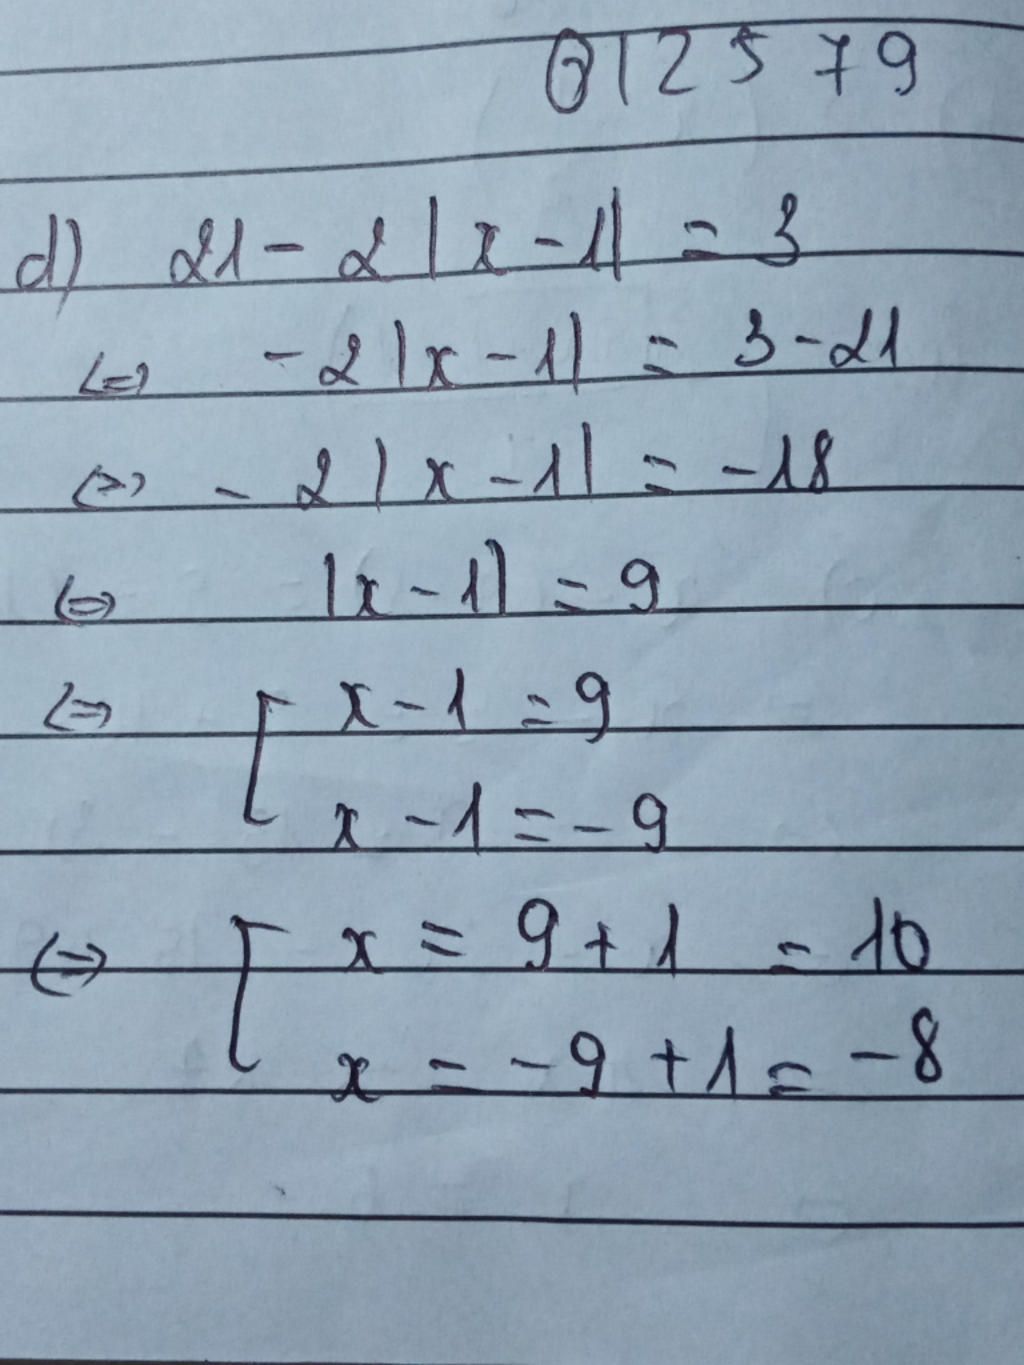 012579
d) 21 - 2|x - 1| = 3
⇔ - 2|x - 1| = 3 - 21
⇔ - 2|x - 1| = -18
⇔ |x - 1| = 9
⇔ [ x - 1 = 9
x - 1 = - 9
⇔ [ x = 9 + 1 = 10
x = - 9 + 1 = - 8